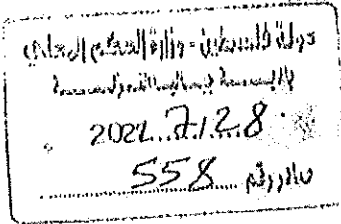 دولة فلسطين - وزارة الحكم المحلي
2022 7/28
صادر رقم 558